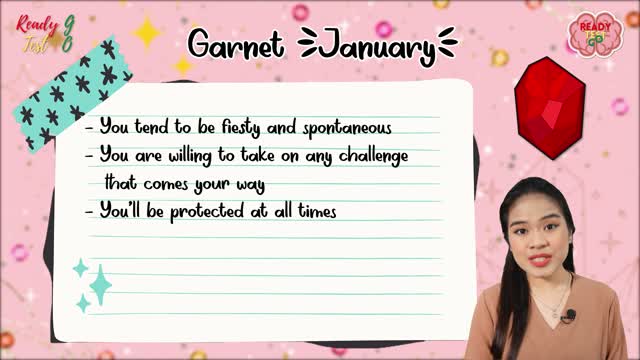 Ready
Test
go
Garnet January
READY
TEST
GO
- You tend to be fiesty and spontaneous
- You are willing to take on any challenge
that comes your way
- You'll be protected at all times